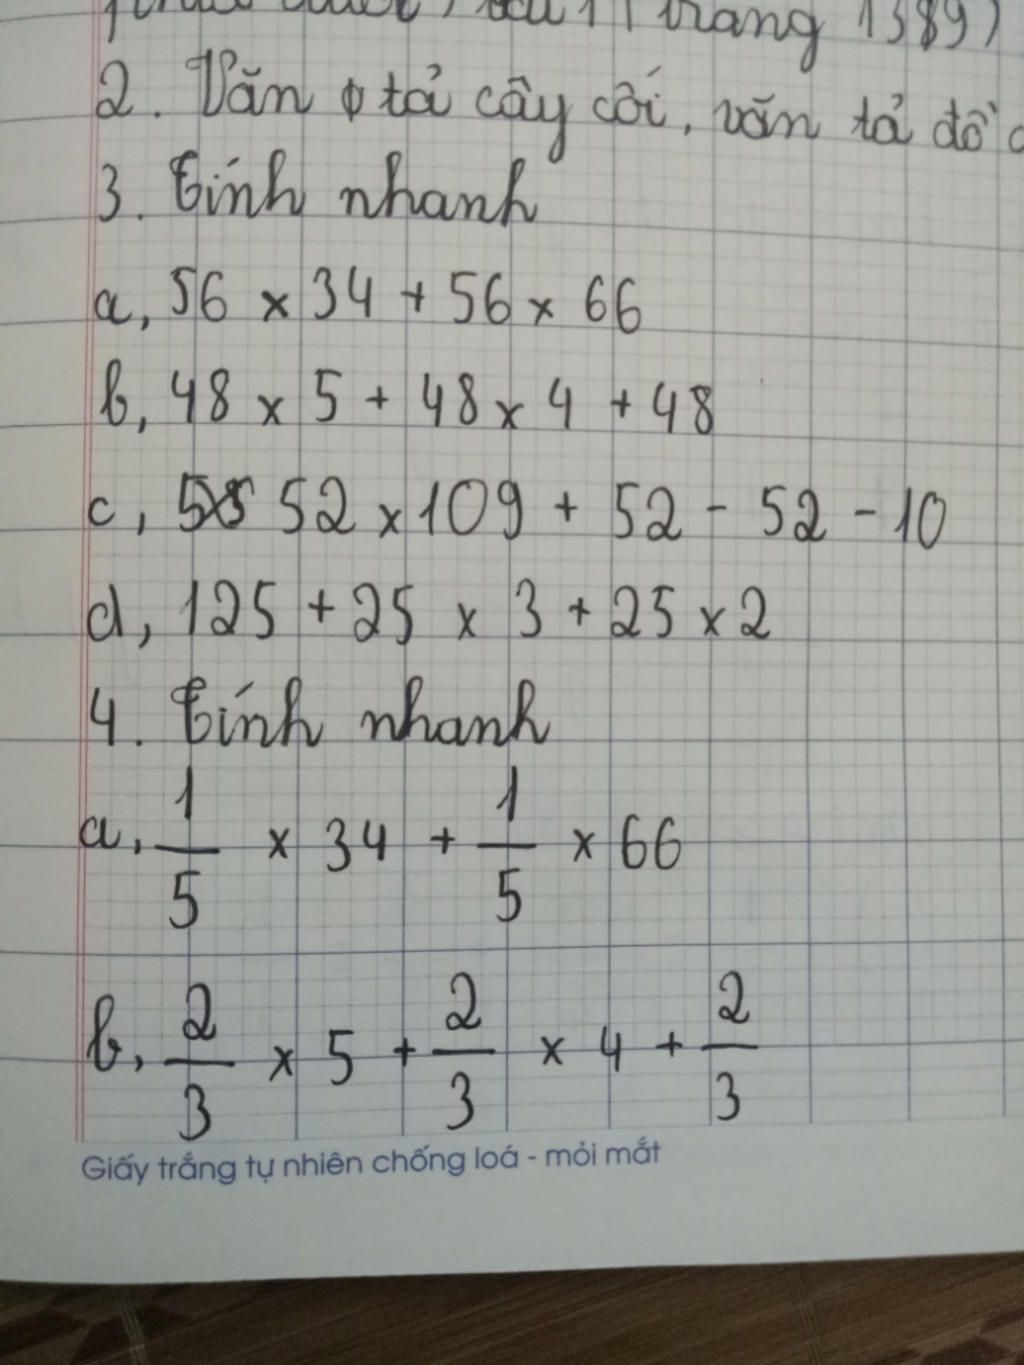 trang 1389)
2. Văn tả cây cối, văn tả đồ
3. Tính nhanh
a, 56 × 34 + 56 × 66
b, 48 × 5 + 48 × 4 + 48
c, 52 × 109 + 52 - 52 - 10
d, 125 + 25 × 3 + 25 × 2
4. Tính nhanh
a, 1/5 × 34 + 1/5 × 66
b, 2/3 × 5 + 2/3 × 4 + 2/3
Giấy trắng tự nhiên chống loá - mỏi mắt